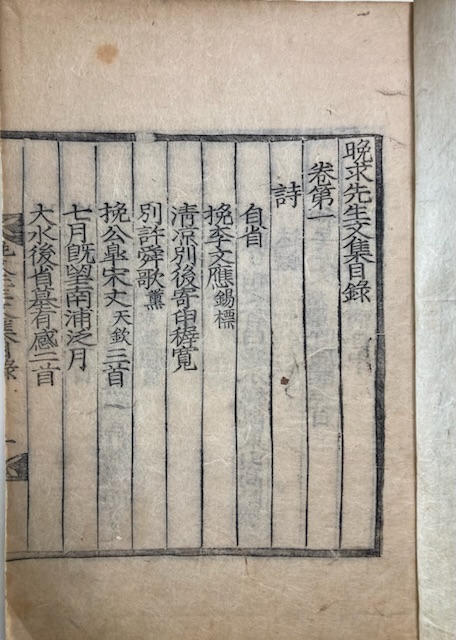 晩求先生文集目錄
卷第一
詩
自省
挽李文應錫標
清凉別後寄申穉寬
別許舜歌薰
挽公臯宋丈天欽三首
七月旣望南浦泛月
大水後省墓有感二首